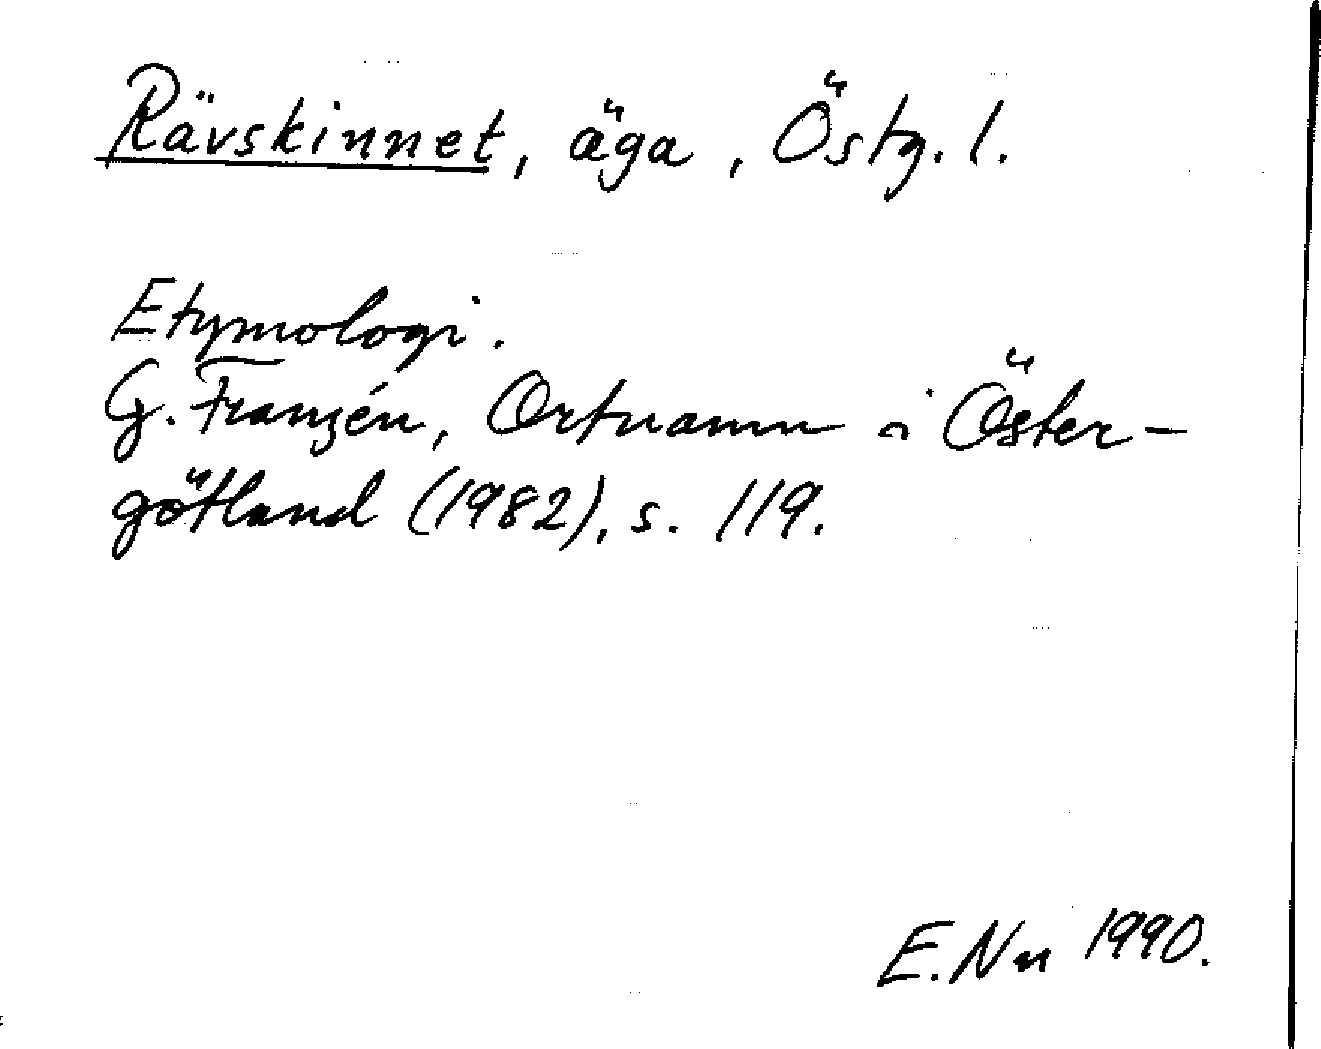 Rävskinnet, äga, Östg. l.
Etymologi.
G. Franzén, Ortnamn i Öster-
götland (1982), s. 119.
E. Nn 1990.